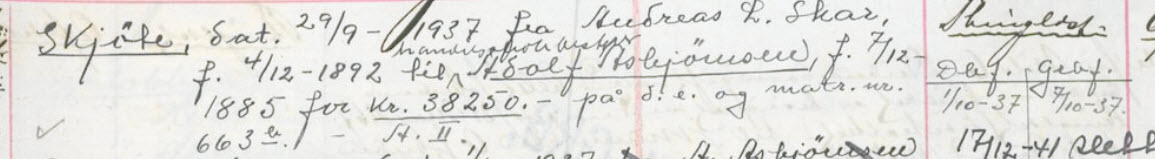 Skjöte, dat. 29/9 - 1937 fra Andreas L. Skar,
f. 4/12-1892 til Adolf Asbjörnsen, f. 7/12-
1885 for kr. 38250.- på d. e. og matr. nr.
663
St. II.
Tinglyst.
Dbf. Gebf.
1/10-37 7/10-37.
1937 A. Asbjörnsen 17/12-41 slett